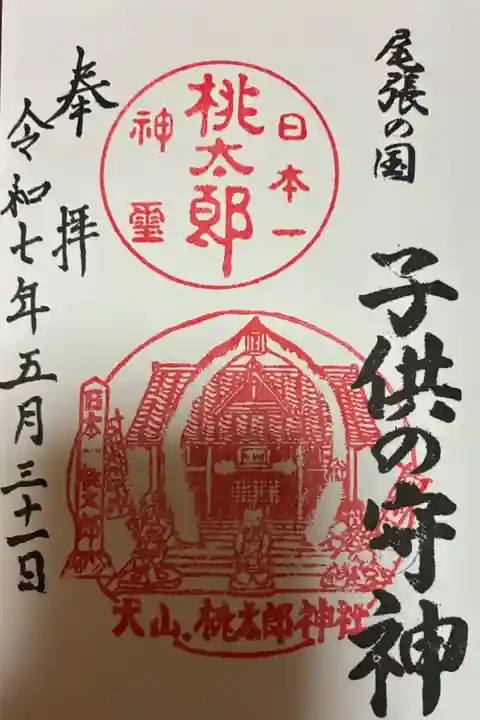 尾張の国
子供の守神
日本一
桃太郎
神霊
日本一桃太郎
犬山.桃太郎神社
奉拝
令和七年五月三十一日